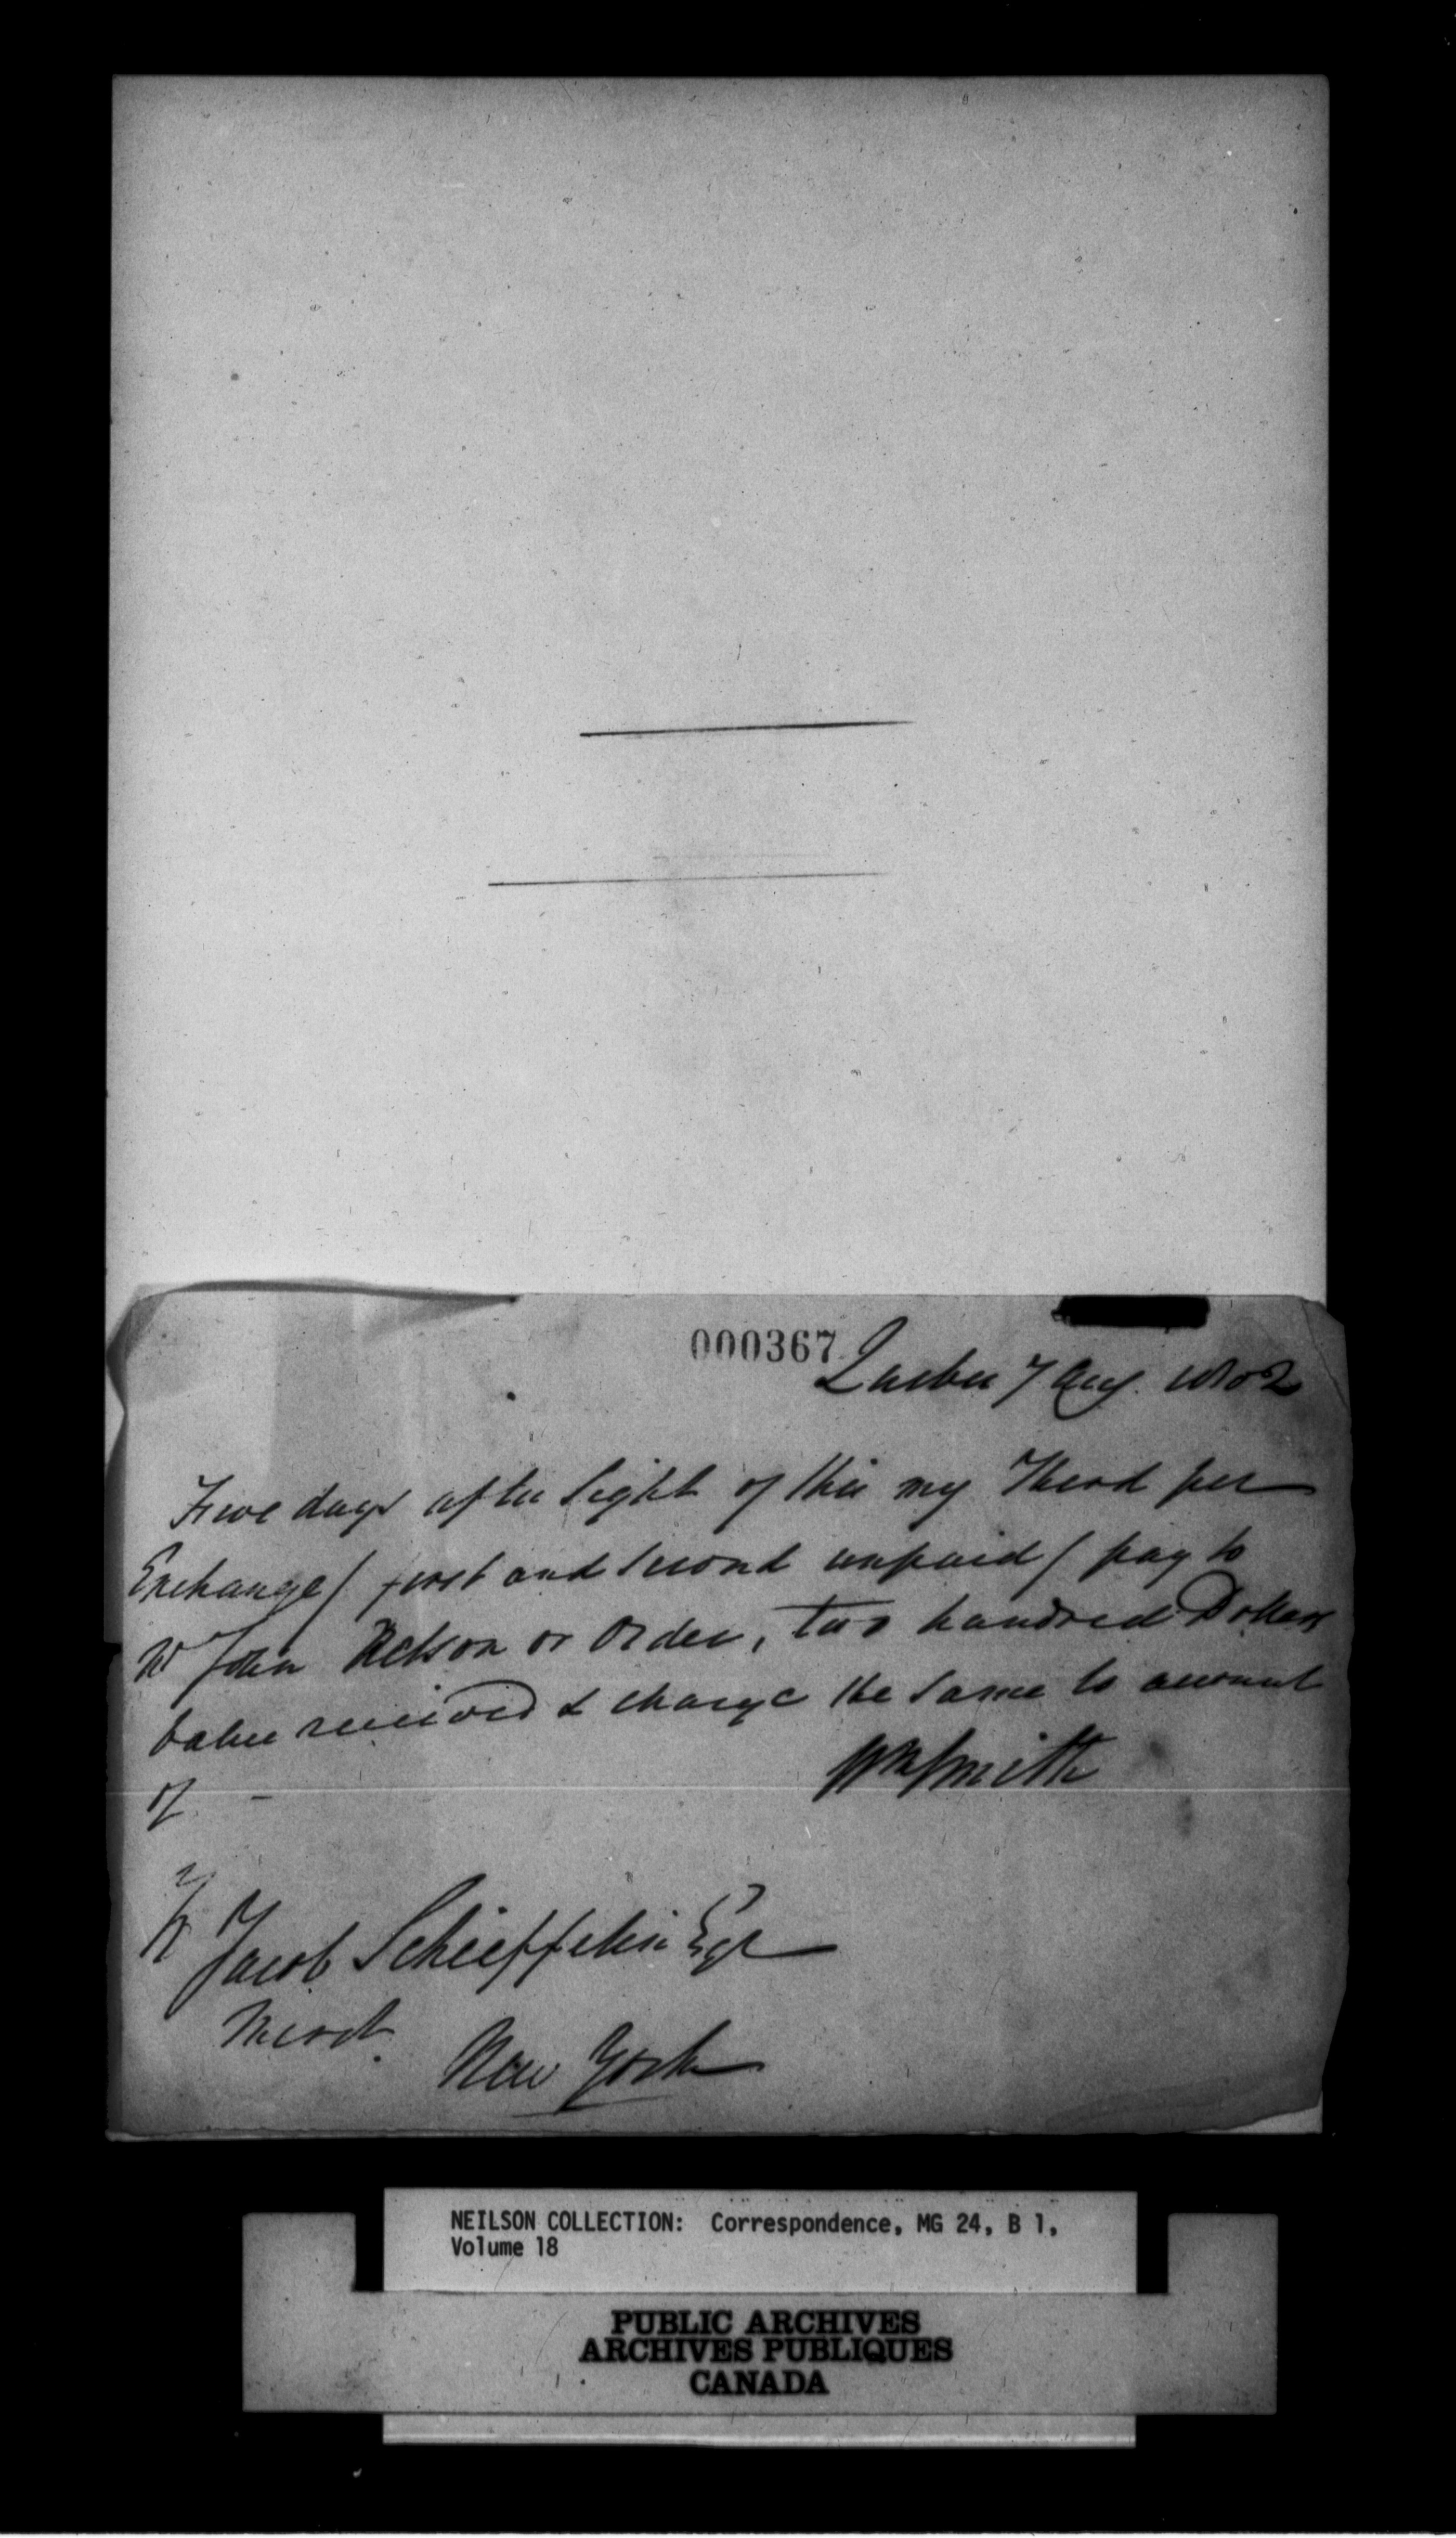 000367
Quebec 7 Aug. 1802
Five days after Sight of this my Third per
Exchange / first and second unpaid / pay to
Mr John Neilson or Order, two hundred Dollars
value received & charge the same to account
of -
Wm Smith
To
Jacob Schieffelin Esqr
Mercht.
New York
NEILSON COLLECTION: Correspondence, MG 24, B 1,
Volume 18
PUBLIC ARCHIVES
ARCHIVES PUBLIQUES
CANADA